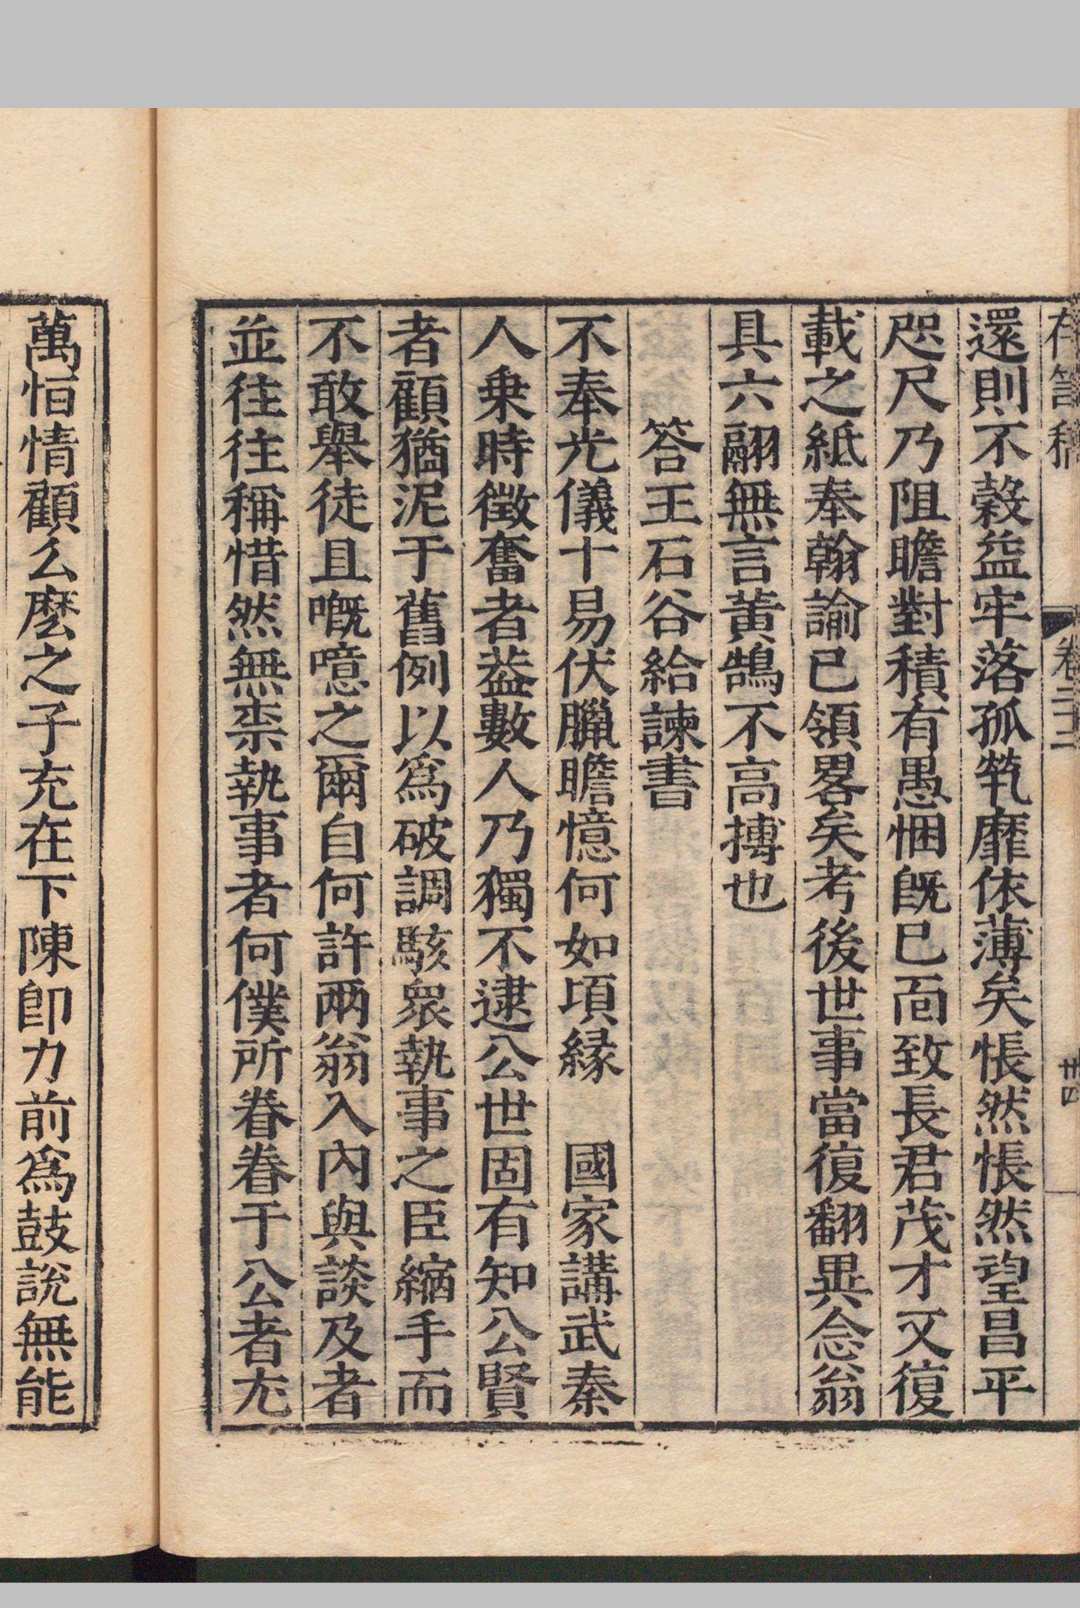 存笥稿
卷二三
卅四
還則不穀益牢落孤煢靡依薄矣悵然悵然望昌平
咫尺乃阻瞻對積有愚悃旣已靣致長君茂才又復
載之紙奉翰諭已領畧矣考後世事當復翻異念翁
具六翮無言黃鵠不高摶也
答王石谷給諫書
不奉光儀十易伏臘瞻憶何如項緣　國家講武秦
人乗時徵奮者葢數人乃獨不逮公世固有知公賢
者顧猶泥于舊例以爲破調駭衆執事之臣縮手而
不敢舉徒且嘅噫之爾自何許兩翁入內與談及者
並往往稱惜然無柰執事者何僕所眷眷于公者尢
萬恒情顧么麽之子充在下陳卽力前爲鼓說無能